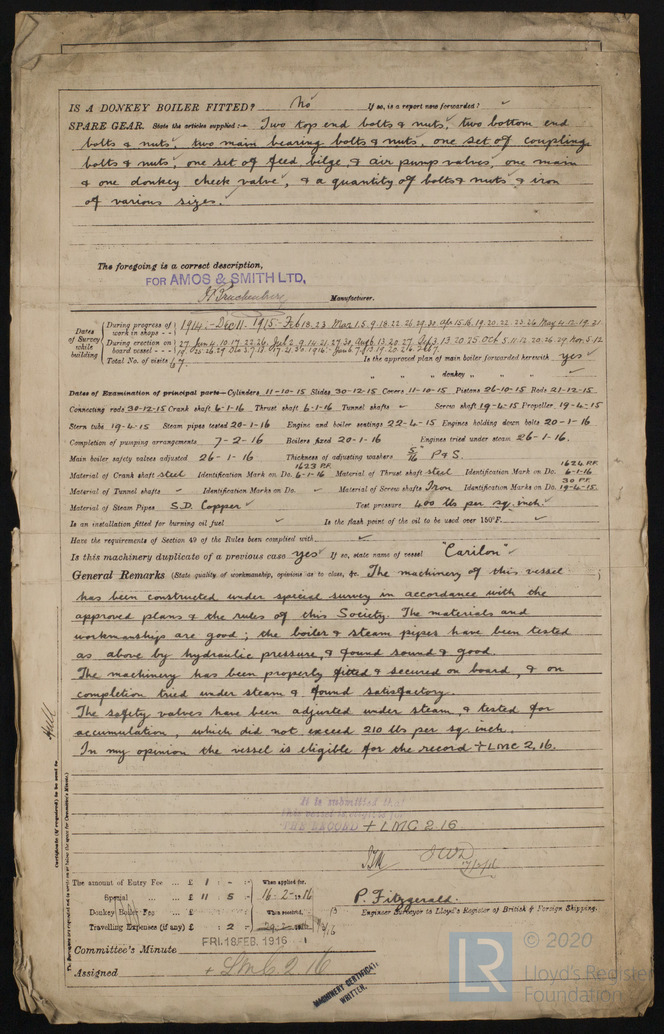 IS A DONKEY BOILER FITTED? No If so, is a report now forwarded? ✓
SPARE GEAR. State the articles supplied:— Two top end bolts & nuts, two bottom end
bolts & nuts, two main bearing bolts & nuts, one set of coupling
bolts & nuts, one set of feed, bilge, & air pump valves, one main
& one donkey check valve, & a quantity of bolts & nuts & iron
of various sizes.
The foregoing is a correct description,
FOR AMOS & SMITH LTD,
Manufacturer.
Dates of Survey while building
During progress of work in shops - - 1914:- Dec 11. 1915:- Feb 18. 23. Mar 1. 5. 9. 18. 22. 26. 29. 30. Apr 15. 16. 19. 20. 22. 23. 26. May 4. 12. 19. 21
During erection on board vessel - - -
Total No. of visits 67. Is the approved plan of main boiler forwarded herewith yes ✓
" " " donkey " " " ✓
Dates of Examination of principal parts—Cylinders 11-10-15 Slides 30-12-15 Covers 11-10-15 Pistons 26-10-15 Rods 21-12-15
Connecting rods 30-12-15 Crank shaft 6-1-16 Thrust shaft 6-1-16 Tunnel shafts ✓ Screw shaft 19-4-15 Propeller 19-4-15
Stern tube 19-4-15 Steam pipes tested 20-1-16 Engine and boiler seatings 22-4-15 Engines holding down bolts 20-1-16
Completion of pumping arrangements 7-2-16 Boilers fixed 20-1-16 Engines tried under steam 26-1-16.
Main boiler safety valves adjusted 26-1-16 Thickness of adjusting washers 5/16 P & S.
Material of Crank shaft steel Identification Mark on Do. 1623 P.F. 6-1-16 Material of Thrust shaft steel Identification Mark on Do. 1624 P.F. 6-1-16
Material of Tunnel shafts ✓ Identification Marks on Do. ✓ Material of Screw shafts Iron Identification Marks on Do. 30 P.F. 19-4-15
Material of Steam Pipes S.D. Copper ✓ Test pressure 400 lbs per sq. inch.
Is an installation fitted for burning oil fuel ✓ Is the flash point of the oil to be used over 150°F. ✓
Have the requirements of Section 49 of the Rules been complied with ✓
Is this machinery duplicate of a previous case yes If so, state name of vessel "Carilon" ✓
General Remarks (State quality of workmanship, opinions as to class, &c. The machinery of this vessel
has been constructed under special survey in accordance with the
approved plans & the rules of this Society. The materials and
workmanship are good; the boiler & steam pipes have been tested
as above by hydraulic pressure, & found sound & good.
The machinery has been properly fitted & secured on board, & on
completion tried under steam & found satisfactory.
The safety valves have been adjusted under steam, & tested for
accumulation, which did not exceed 210 lbs per sq. inch.
In my opinion the vessel is eligible for the record +LMC 2,16.
Hull
Certificate (if required) to be sent to
It is submitted that
this vessel is eligible for
THE RECORD + LMC 2.16
The amount of Entry Fee ... £ 1 : - : -
Special ... £ 11 : 5 : -
Donkey Boiler Fee ... £ : :
Travelling Expenses (if any) £ : 2 : -
When applied for, 16-2-1916
When received,
P. Fitzgerald.
Engineer Surveyor to Lloyd's Register of British & Foreign Shipping.
Committee's Minute FRI. 18 FEB. 1916
Assigned + LMC 2.16
MACHINERY CERTIFICATE WRITTEN.
LR © 2020
Lloyd's Register
Foundation